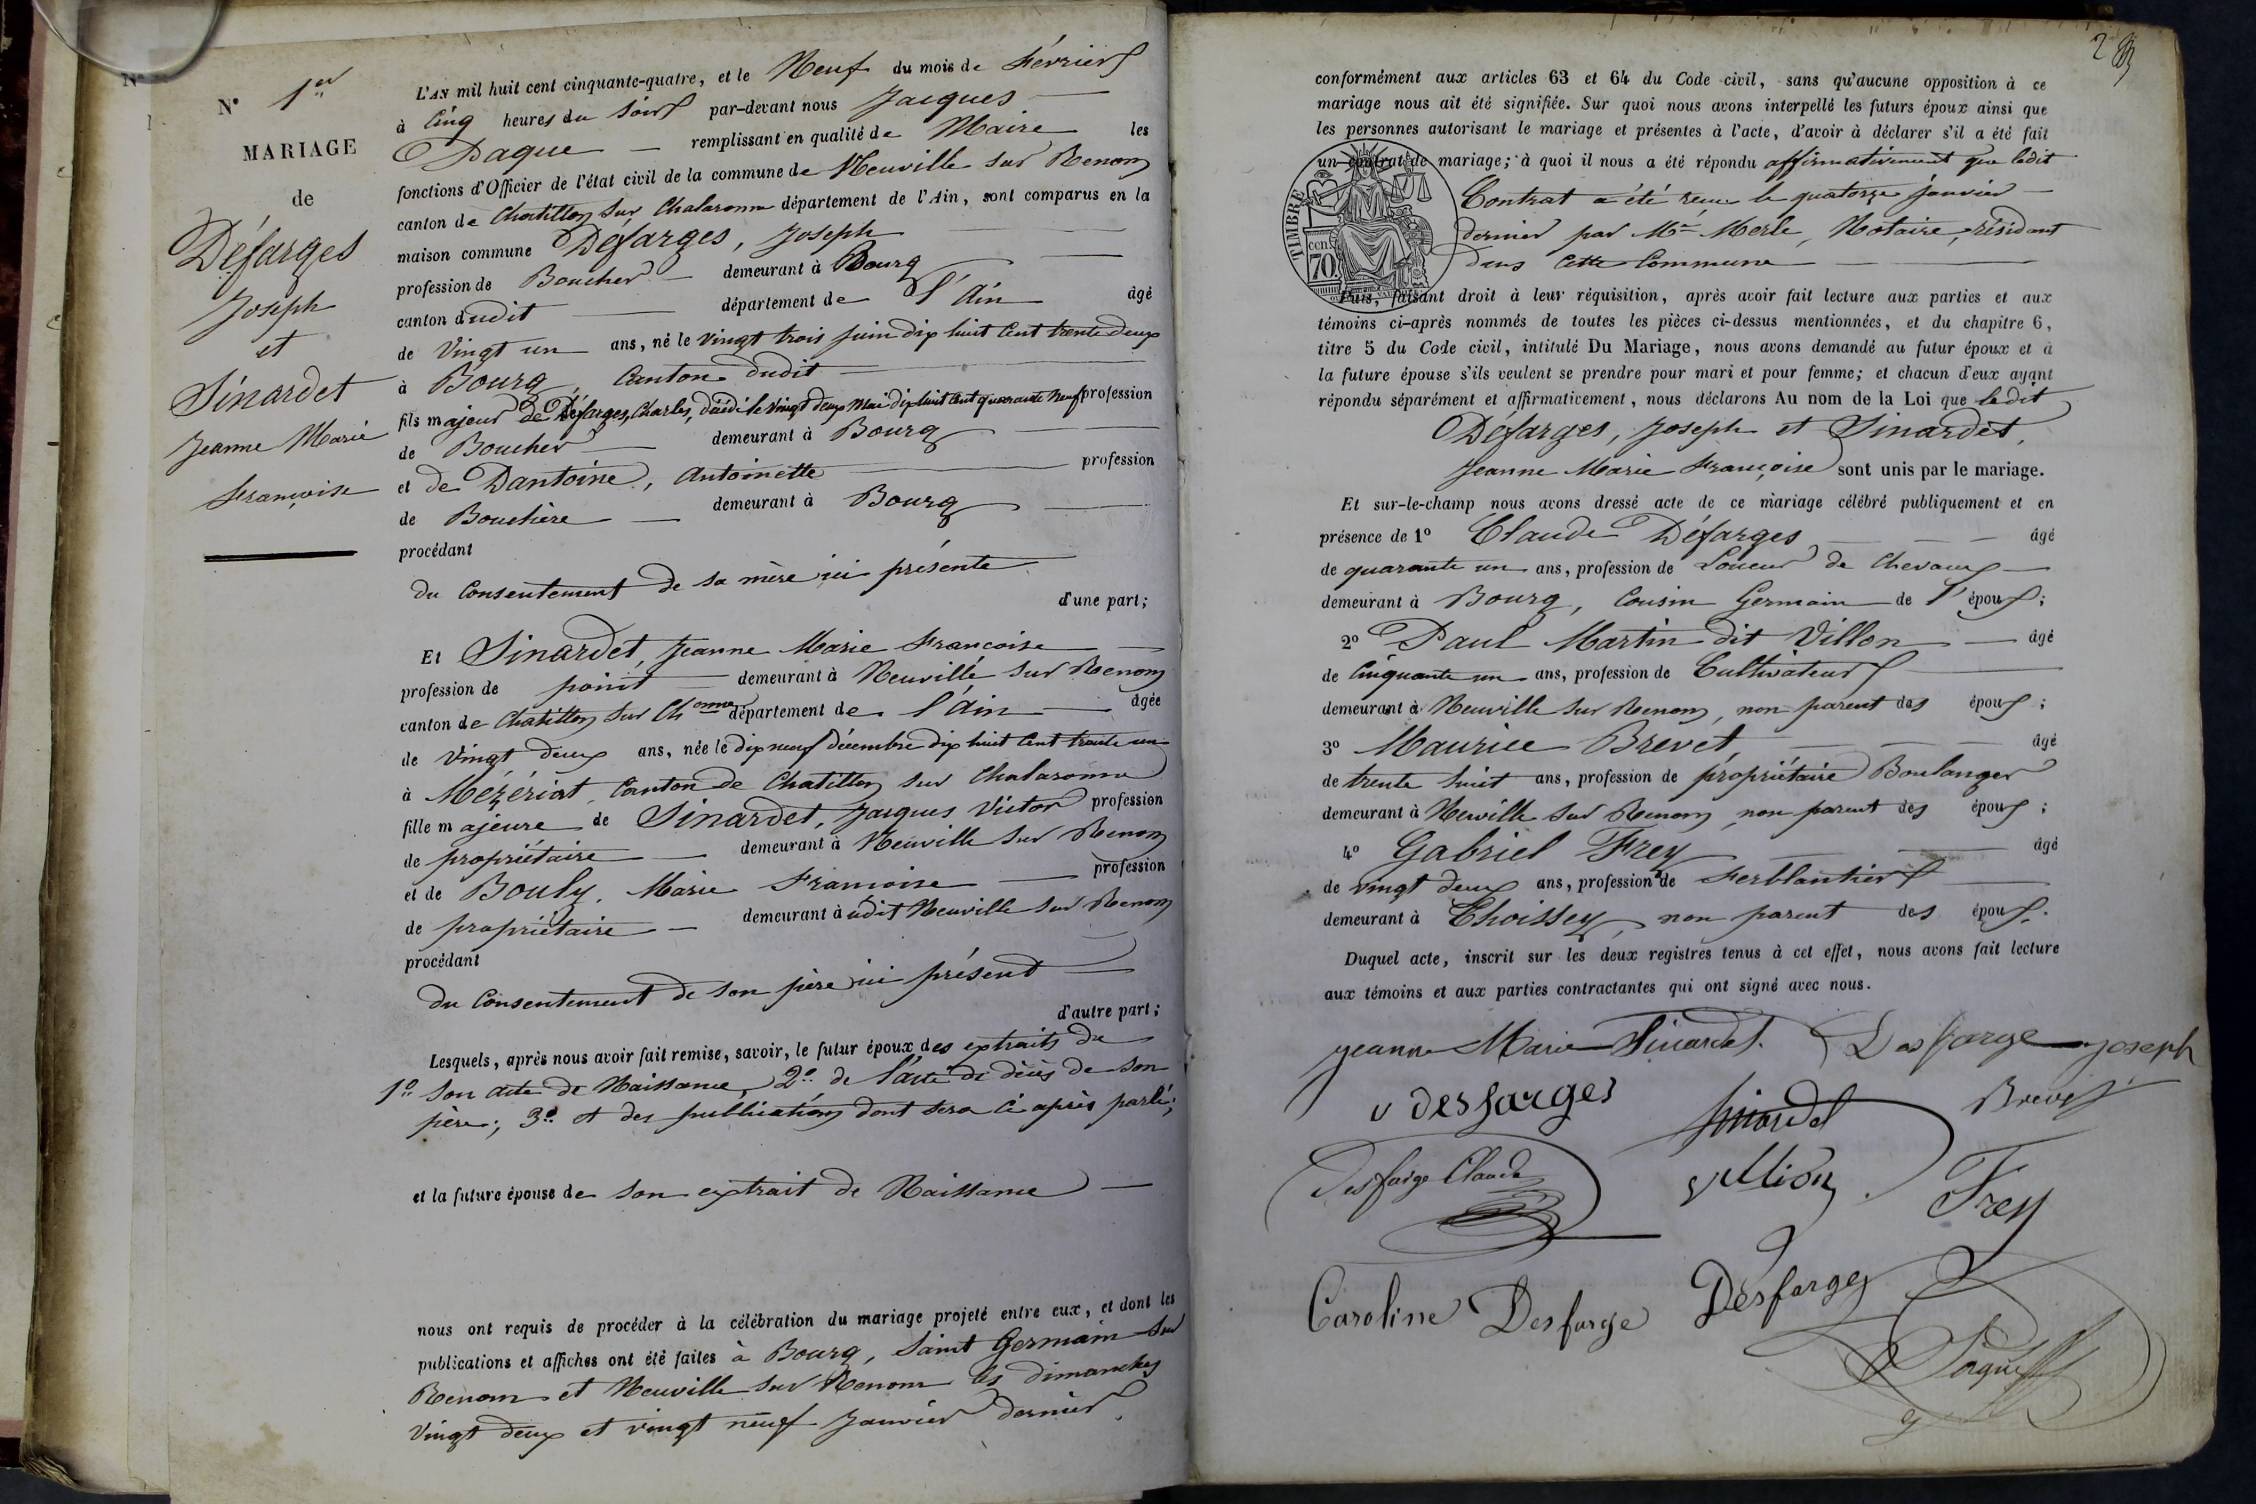 N° 1er
MARIAGE
de
Défarges
Joseph
et
Sinardet
Jeanne Marie
Françoise
L'AN mil huit cent cinquante-quatre, et le Neuf du mois de Février
à Cinq heures du Soir par-devant nous Jacques
Paque remplissant en qualité de Maire les
fonctions d'Officier de l'état civil de la commune de Neuville sur Renom
canton de Chatillon sur Chalaronne département de l'Ain, sont comparus en la
maison commune Défarges, Joseph
profession de Boucher demeurant à Bourg
canton dudit département de l'Ain âgé
de Vingt un ans, né le vingt trois juin dix huit Cent trente deux
à Bourg, Canton dudit
fils majeur de Défarges, Charles, décédé le vingt deux Mai dix huit Cent quarante neuf profession
de Boucher demeurant à Bourg
et de Dantoine, Antoinette profession
de Bouchère demeurant à Bourg
procédant
du Consentement de sa mère ici présente
d'une part;
Et Sinardet, Jeanne Marie Françoise
profession de point demeurant à Neuville sur Renom
canton de Chatillon sur Chonne département de l'Ain âgée
de Vingt deux ans, née le dix neuf décembre dix huit Cent trente un
à Mézériat, Canton de Chatillon sur Chalaronne
fille majeure de Sinardet, Jacques Victor profession
de propriétaire demeurant à Neuville sur Renom
et de Bouly, Marie Francoise profession
de propriétaire demeurant à udit Neuville sur Renom
procédant
du Consentement de son père ici présent
d'autre part;
Lesquels, après nous avoir fait remise, savoir, le futur époux des extraits de
1° son acte de Naissance, 2° de l'acte de décès de son
père; 3° et des publications dont sera ci après parlé;
et la future épouse de son extrait de Naissance
nous ont requis de procéder à la célébration du mariage projeté entre eux, et dont les
publications et affiches ont été faites à Bourg, Saint Germain sur
Renom et Neuville sur Renom les dimanches
Vingt deux et vingt neuf Janvier dernier.
conformément aux articles 63 et 64 du Code civil, sans qu'aucune opposition à ce
mariage nous ait été signifiée. Sur quoi nous avons interpellé les futurs époux ainsi que
les personnes autorisant le mariage et présentes à l'acte, d'avoir à déclarer s'il a été fait
un contrat de mariage; à quoi il nous a été répondu affirmativement que ledit
Contrat a été reçu le quatorze janvier
dernier par Me Merle, Notaire, résidant
dans cette Commune
TIMBRE
cen.
70.
Puis, faisant droit à leur réquisition, après avoir fait lecture aux parties et aux
témoins ci-après nommés de toutes les pièces ci-dessus mentionnées, et du chapitre 6,
titre 5 du Code civil, intitulé Du Mariage, nous avons demandé au futur époux et à
la future épouse s'ils veulent se prendre pour mari et pour femme; et chacun d'eux ayant
répondu séparément et affirmativement, nous déclarons Au nom de la Loi que ledit
Défarges, Joseph et Sinardet,
Jeanne Marie Françoise sont unis par le mariage.
Et sur-le-champ nous avons dressé acte de ce mariage célébré publiquement et en
présence de 1° Claude Défarges âgé
de quarante un ans, profession de Loueur de Chevaux
demeurant à Bourg, Cousin Germain de l'époux;
2° Paul Martin dit Villon âgé
de Cinquante un ans, profession de Cultivateur
demeurant à Neuville sur Renom, non parent des époux;
3° Maurice Brevet, âgé
de trente huit ans, profession de propriétaire Boulanger
demeurant à Neuville sur Renom, non parent des époux;
4° Gabriel Frey âgé
de vingt deux ans, profession de Ferblantier
demeurant à Thoissey, non parent des époux.
Duquel acte, inscrit sur les deux registres tenus à cet effet, nous avons fait lecture
aux témoins et aux parties contractantes qui ont signé avec nous.
Jeanne Marie Sinardet. Desfarge Joseph
v desfarges Sinardet Brevet
Desfarge Claude Frey
Caroline Desfarge Desfarges
Paque